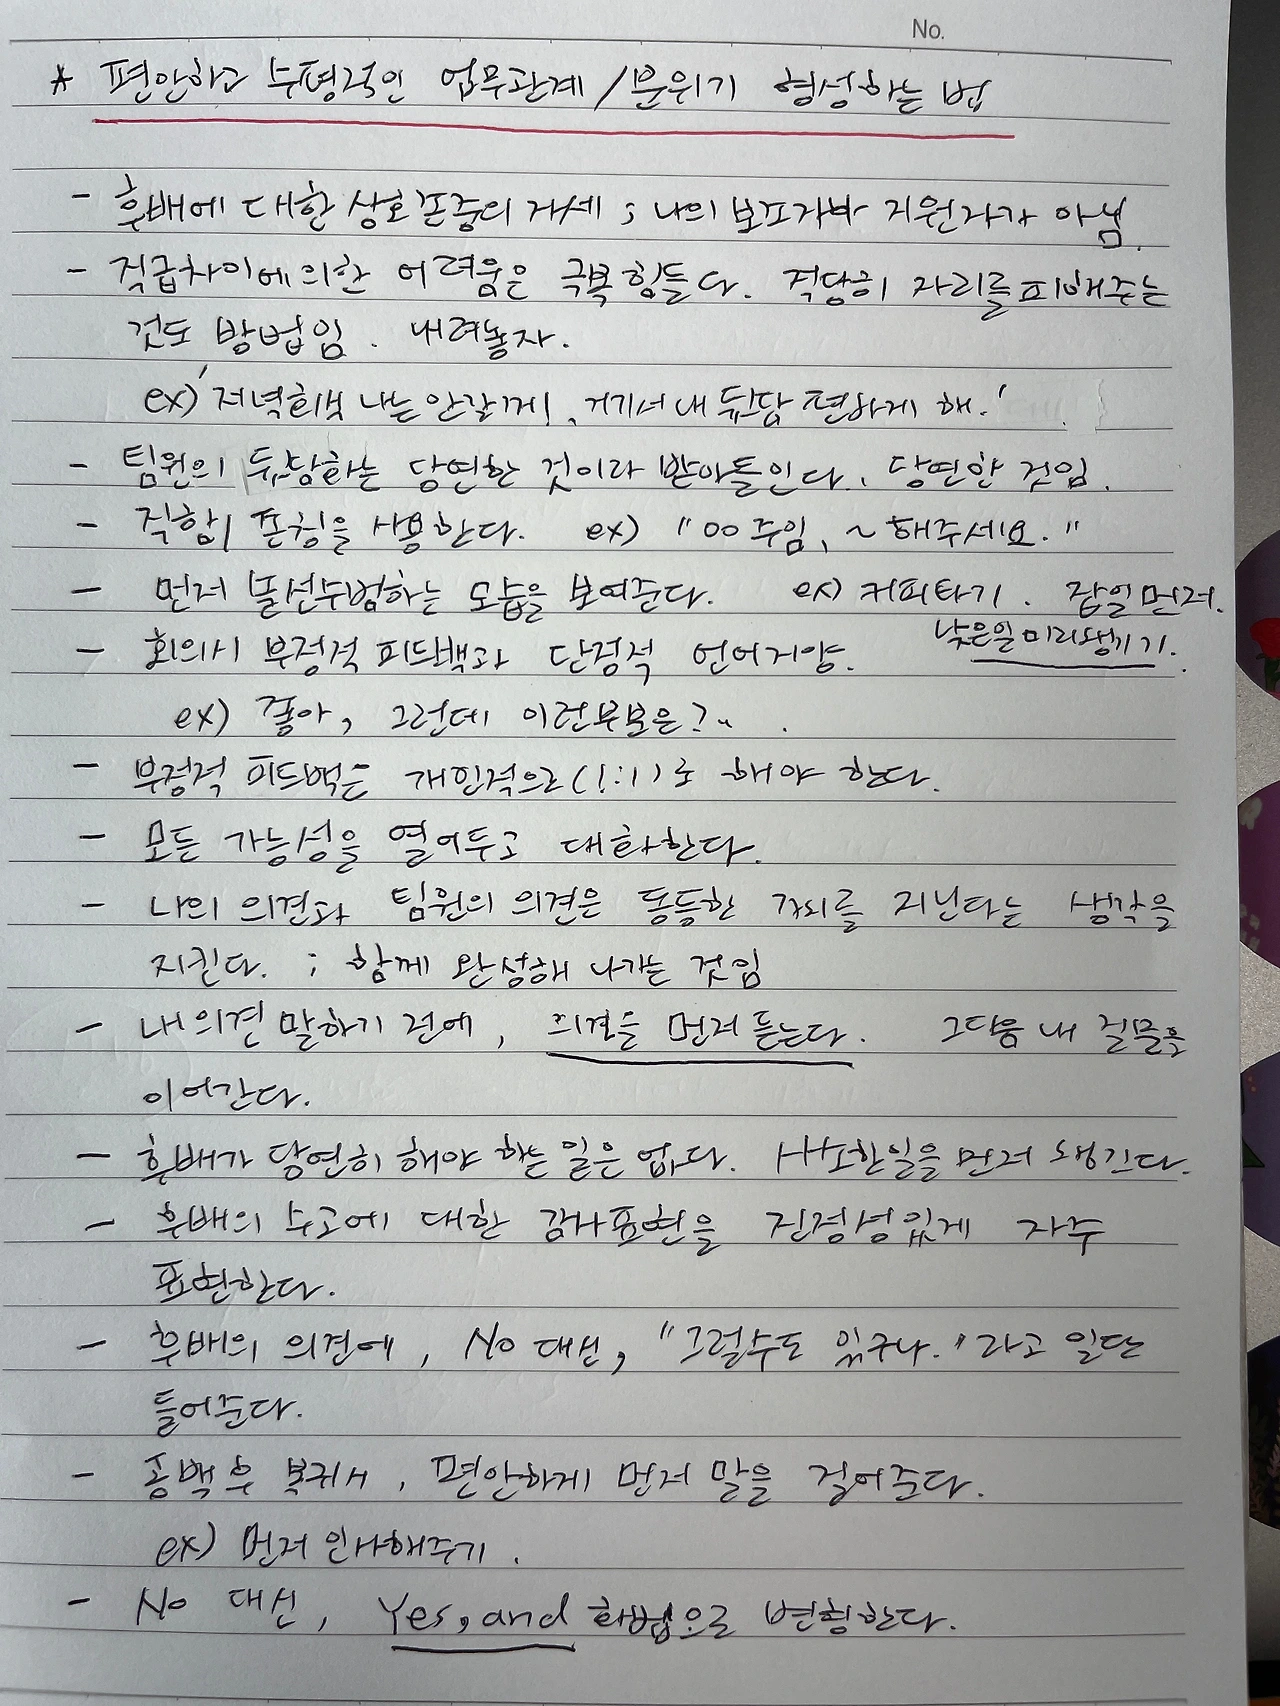 No.
* 편안하고 수평적인 업무관계/분위기 형성하는 법
- 후배에 대한 상호존중의 자세 ; 나의 보조자나 지원자가 아님.
- 직급차이에 의한 어려움은 극복 힘들다. 적당히 자리를 피해주는
것도 방법임. 내려놓자.
ex) '저녁회식 나는 안갈게!, 거기서 내 뒷담 편하게 해.'
- 팀원의 뒷담하는 당연한 것이라 받아들인다. 당연한 것임.
- 직함/존칭을 사용한다. ex) "OO주임, ~해주세요."
- 먼저 솔선수범하는 모습을 보여준다. ex) 커피타기. 잡일먼저.
낮은일 미리챙기기.
- 회의시 부정적 피드백과 단정적 언어지양.
ex) 좋아, 그런데 이런부분은?"
- 부정적 피드백은 개인적으로(1:1)로 해야 한다.
- 모든 가능성을 열어두고 대화한다.
- 나의 의견과 팀원의 의견은 동등한 가치를 지닌다는 생각을
지킨다. ; 함께 완성해 나가는 것임
- 내 의견 말하기 전에, 의견을 먼저 듣는다. 그다음 내 질문을
이어간다.
- 후배가 당연히 해야 하는 일은 없다. 사소한일을 먼저 챙긴다.
- 후배의 수고에 대한 감사표현을 진정성있게 자주
표현한다.
- 후배의 의견에, No 대신, "그럴수도 있구나.'라고 일단
들어준다.
- 공백 후 복귀시, 편안하게 먼저 말을 걸어준다.
ex) 먼저 인사해주기.
- No 대신, Yes, and 화법으로 변형한다.